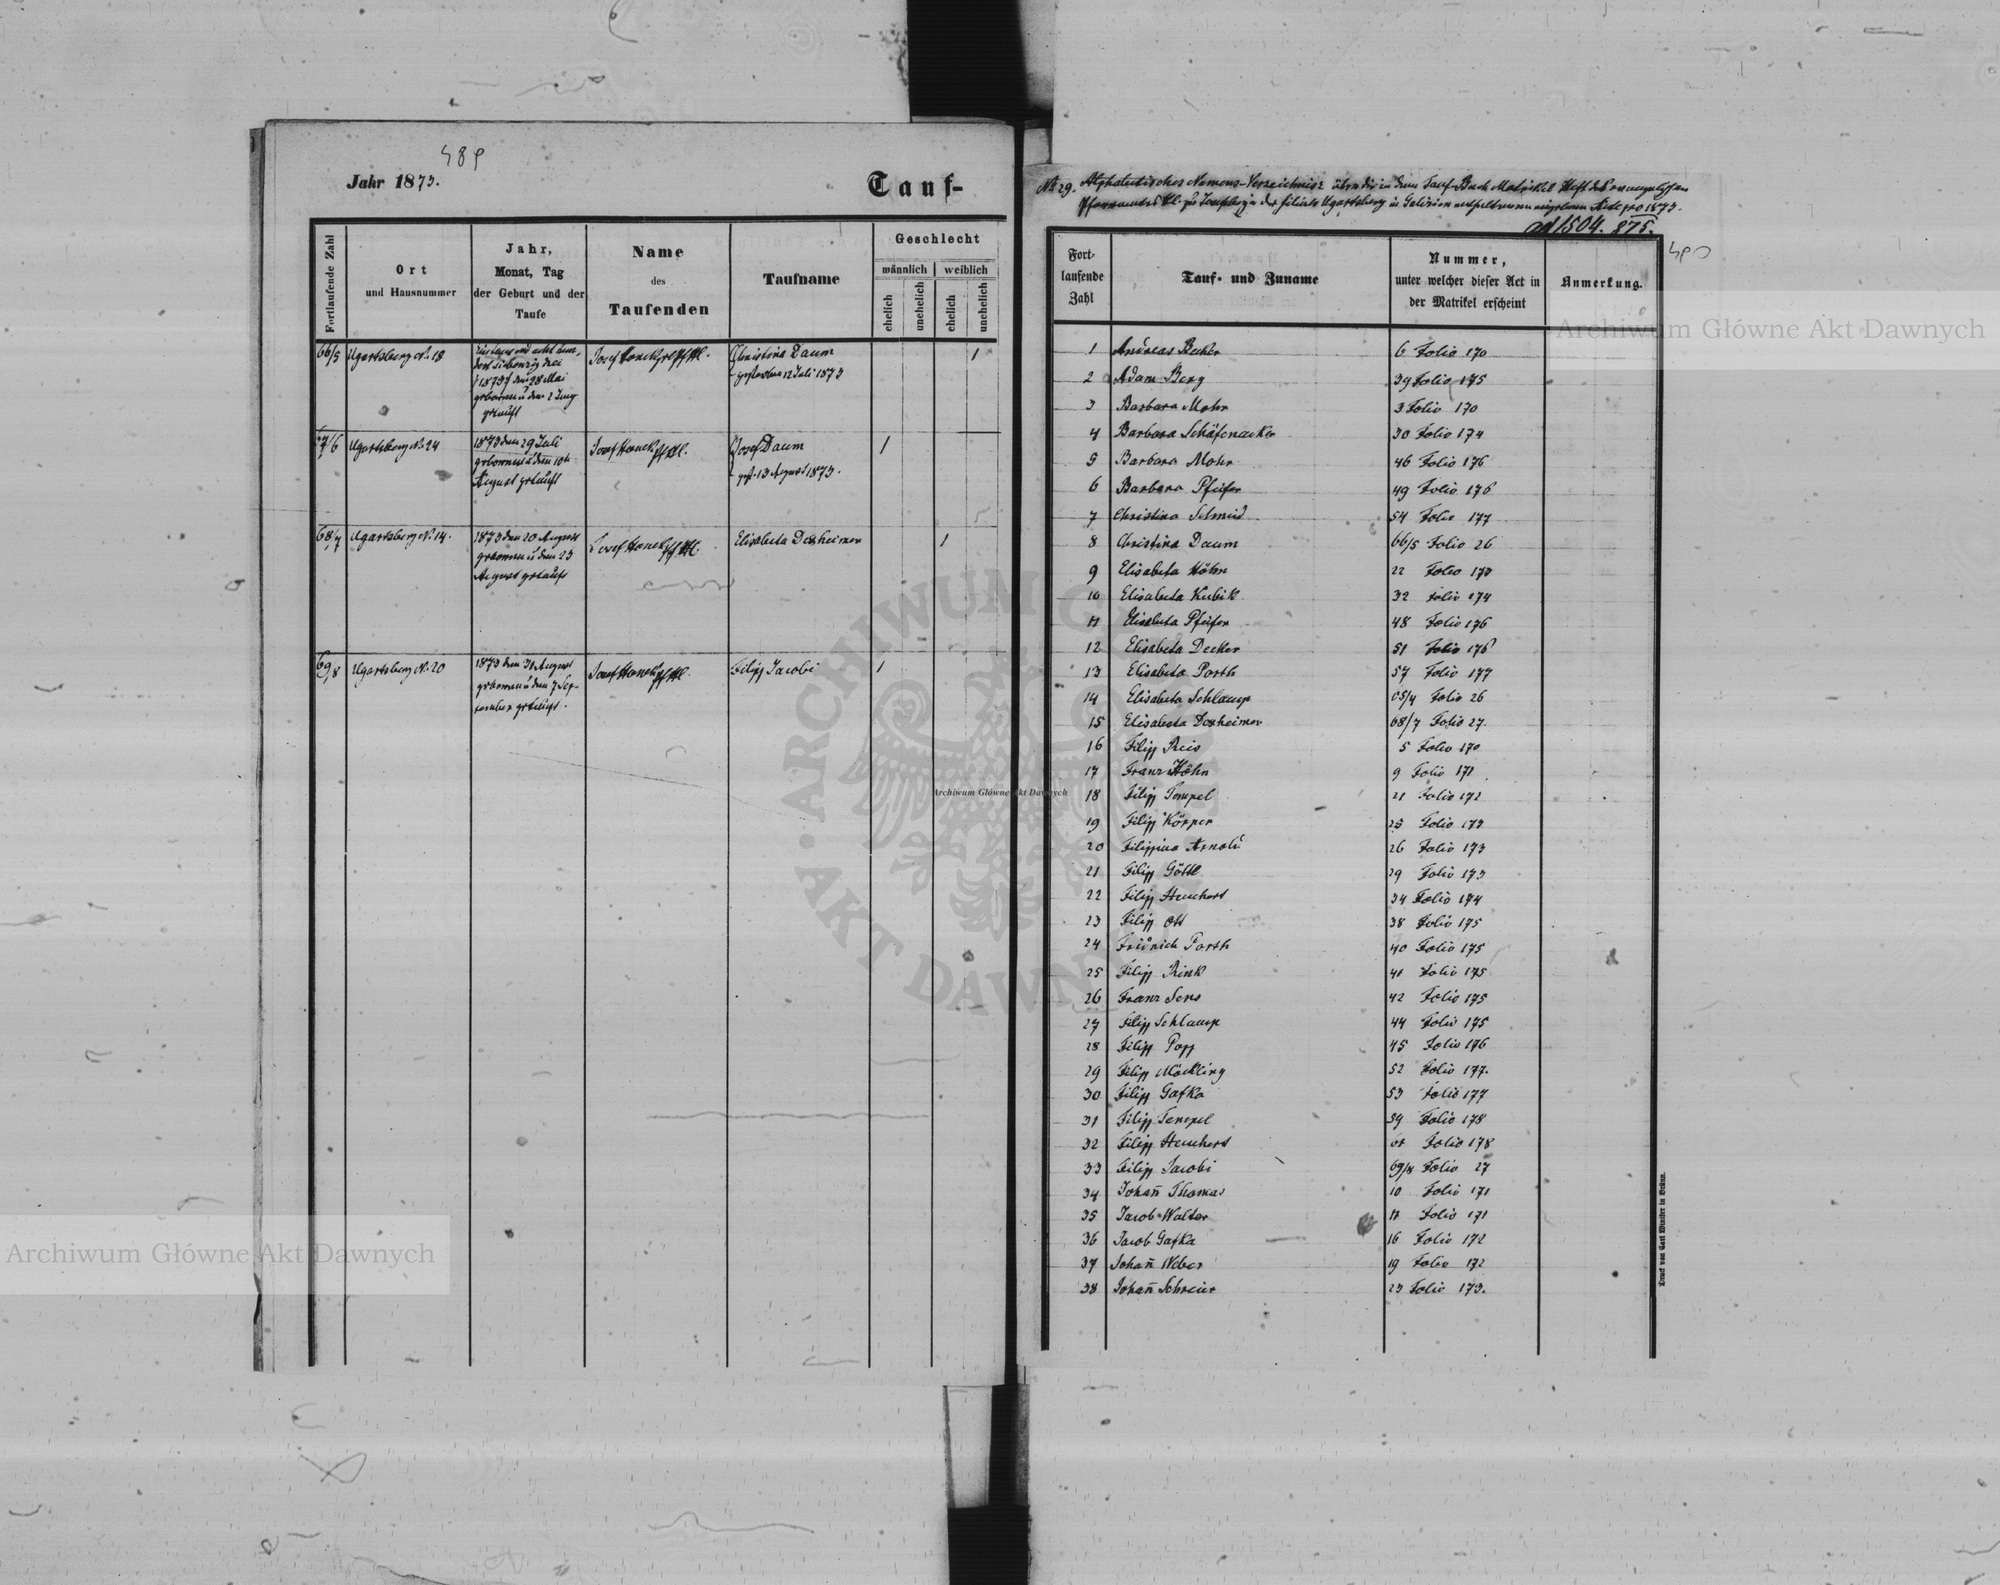 489
Jahr 1873.
Tauf-
Fortlaufende Zahl
Ort
und Hausnummer
Jahr,
Monat, Tag
der Geburt und der
Taufe
Name
des
Taufenden
Taufname
Geschlecht
männlich
weiblich
ehelich
unehelich
ehelich
unehelich
66/5
Ugartsberg N. 18
Eintausend acht hun-
dert siebenzig drei
(1873) den 28 Mai
geboren u. den 2 Juny
getauft
Josef Honek
Christina Daum
gestorben 12 Juli 1873
1
67/6
Ugartsberg N. 24
1873 den 29 Juli
geboren u. den 10t
August getauft
Josef Honek
Josef Daum
gest. 13 August 1873.
1
68/7
Ugartsberg N. 14.
1873 den 20 August
geboren u. den 23
August getauft
Josef Honek
Elisabeta Dexheimer
1
69/8
Ugartsberg N. 20
1873 den 31 August
geboren u. den 7 Sep-
tember getauft.
Josef Honek
Filipp Jacobi
1
N. 29. Alphabetisches Namens-Verzeichniss über die in dem Tauf-Buch Matrikel
Filiale Ugartsberg in Galizien Acte pro 1873.
ad 1504. 875.
490
Fort-
laufende
Zahl
Tauf- und Zuname
Nummer,
unter welcher dieser Act in
der Matrikel erscheint
Anmerkung.
1 Andreas Becker 6 Folio 170
2 Adam Berg 39 Folio 175
3 Barbara Mohr 3 Folio 170
4 Barbara Schäfenacker 30 Folio 174
5 Barbara Mohr 46 Folio 176
6 Barbara Pfeifer 49 Folio 176
7 Christina Schmid 54 Folio 177
8 Christina Daum 66/5 Folio 26
9 Elisabeta Höhn 22 Folio 173
10 Elisabeta Kubik 32 Folio 174
11 Elisabeta Pfeifer 48 Folio 176
12 Elisabeta Decker 51 Folio 176
13 Elisabeta Porth 57 Folio 177
14 Elisabeta Schlamp 65/4 Folio 26
15 Elisabeta Dexheimer 68/7 Folio 27.
16 Filipp Reis 5 Folio 170
17 Franz Höhn 9 Folio 171
18 Filipp Tempel 21 Folio 172
19 Filipp Körper 25 Folio 173
20 Filippina Arnold 26 Folio 173
21 Filipp Göttel 29 Folio 173
22 Filipp Heuchert 34 Folio 174
23 Filipp Ott 38 Folio 175
24 Fridrich Porth 40 Folio 175
25 Filipp Rink 41 Folio 175
26 Franz Sens 42 Folio 175
27 Filipp Schlamp 44 Folio 175
28 Filipp Popp 45 Folio 176
29 Filipp Möckling 52 Folio 177.
30 Filipp Gafka 53 Folio 177
31 Filipp Tempel 59 Folio 178
32 Filipp Heuchert 61 Folio 178
33 Filipp Jacobi 69/8 Folio 27
34 Johañ Thomas 10 Folio 171
35 Jacob Walter 11 Folio 171
36 Jacob Gafka 16 Folio 172
37 Johañ Weber 19 Folio 172
38 Johañ Schreier 23 Folio 173.
Druck von Carl Winiker in Brünn.
Archiwum Główne Akt Dawnych
Archiwum Główne Akt Dawnych
Archiwum Główne Akt Dawnych